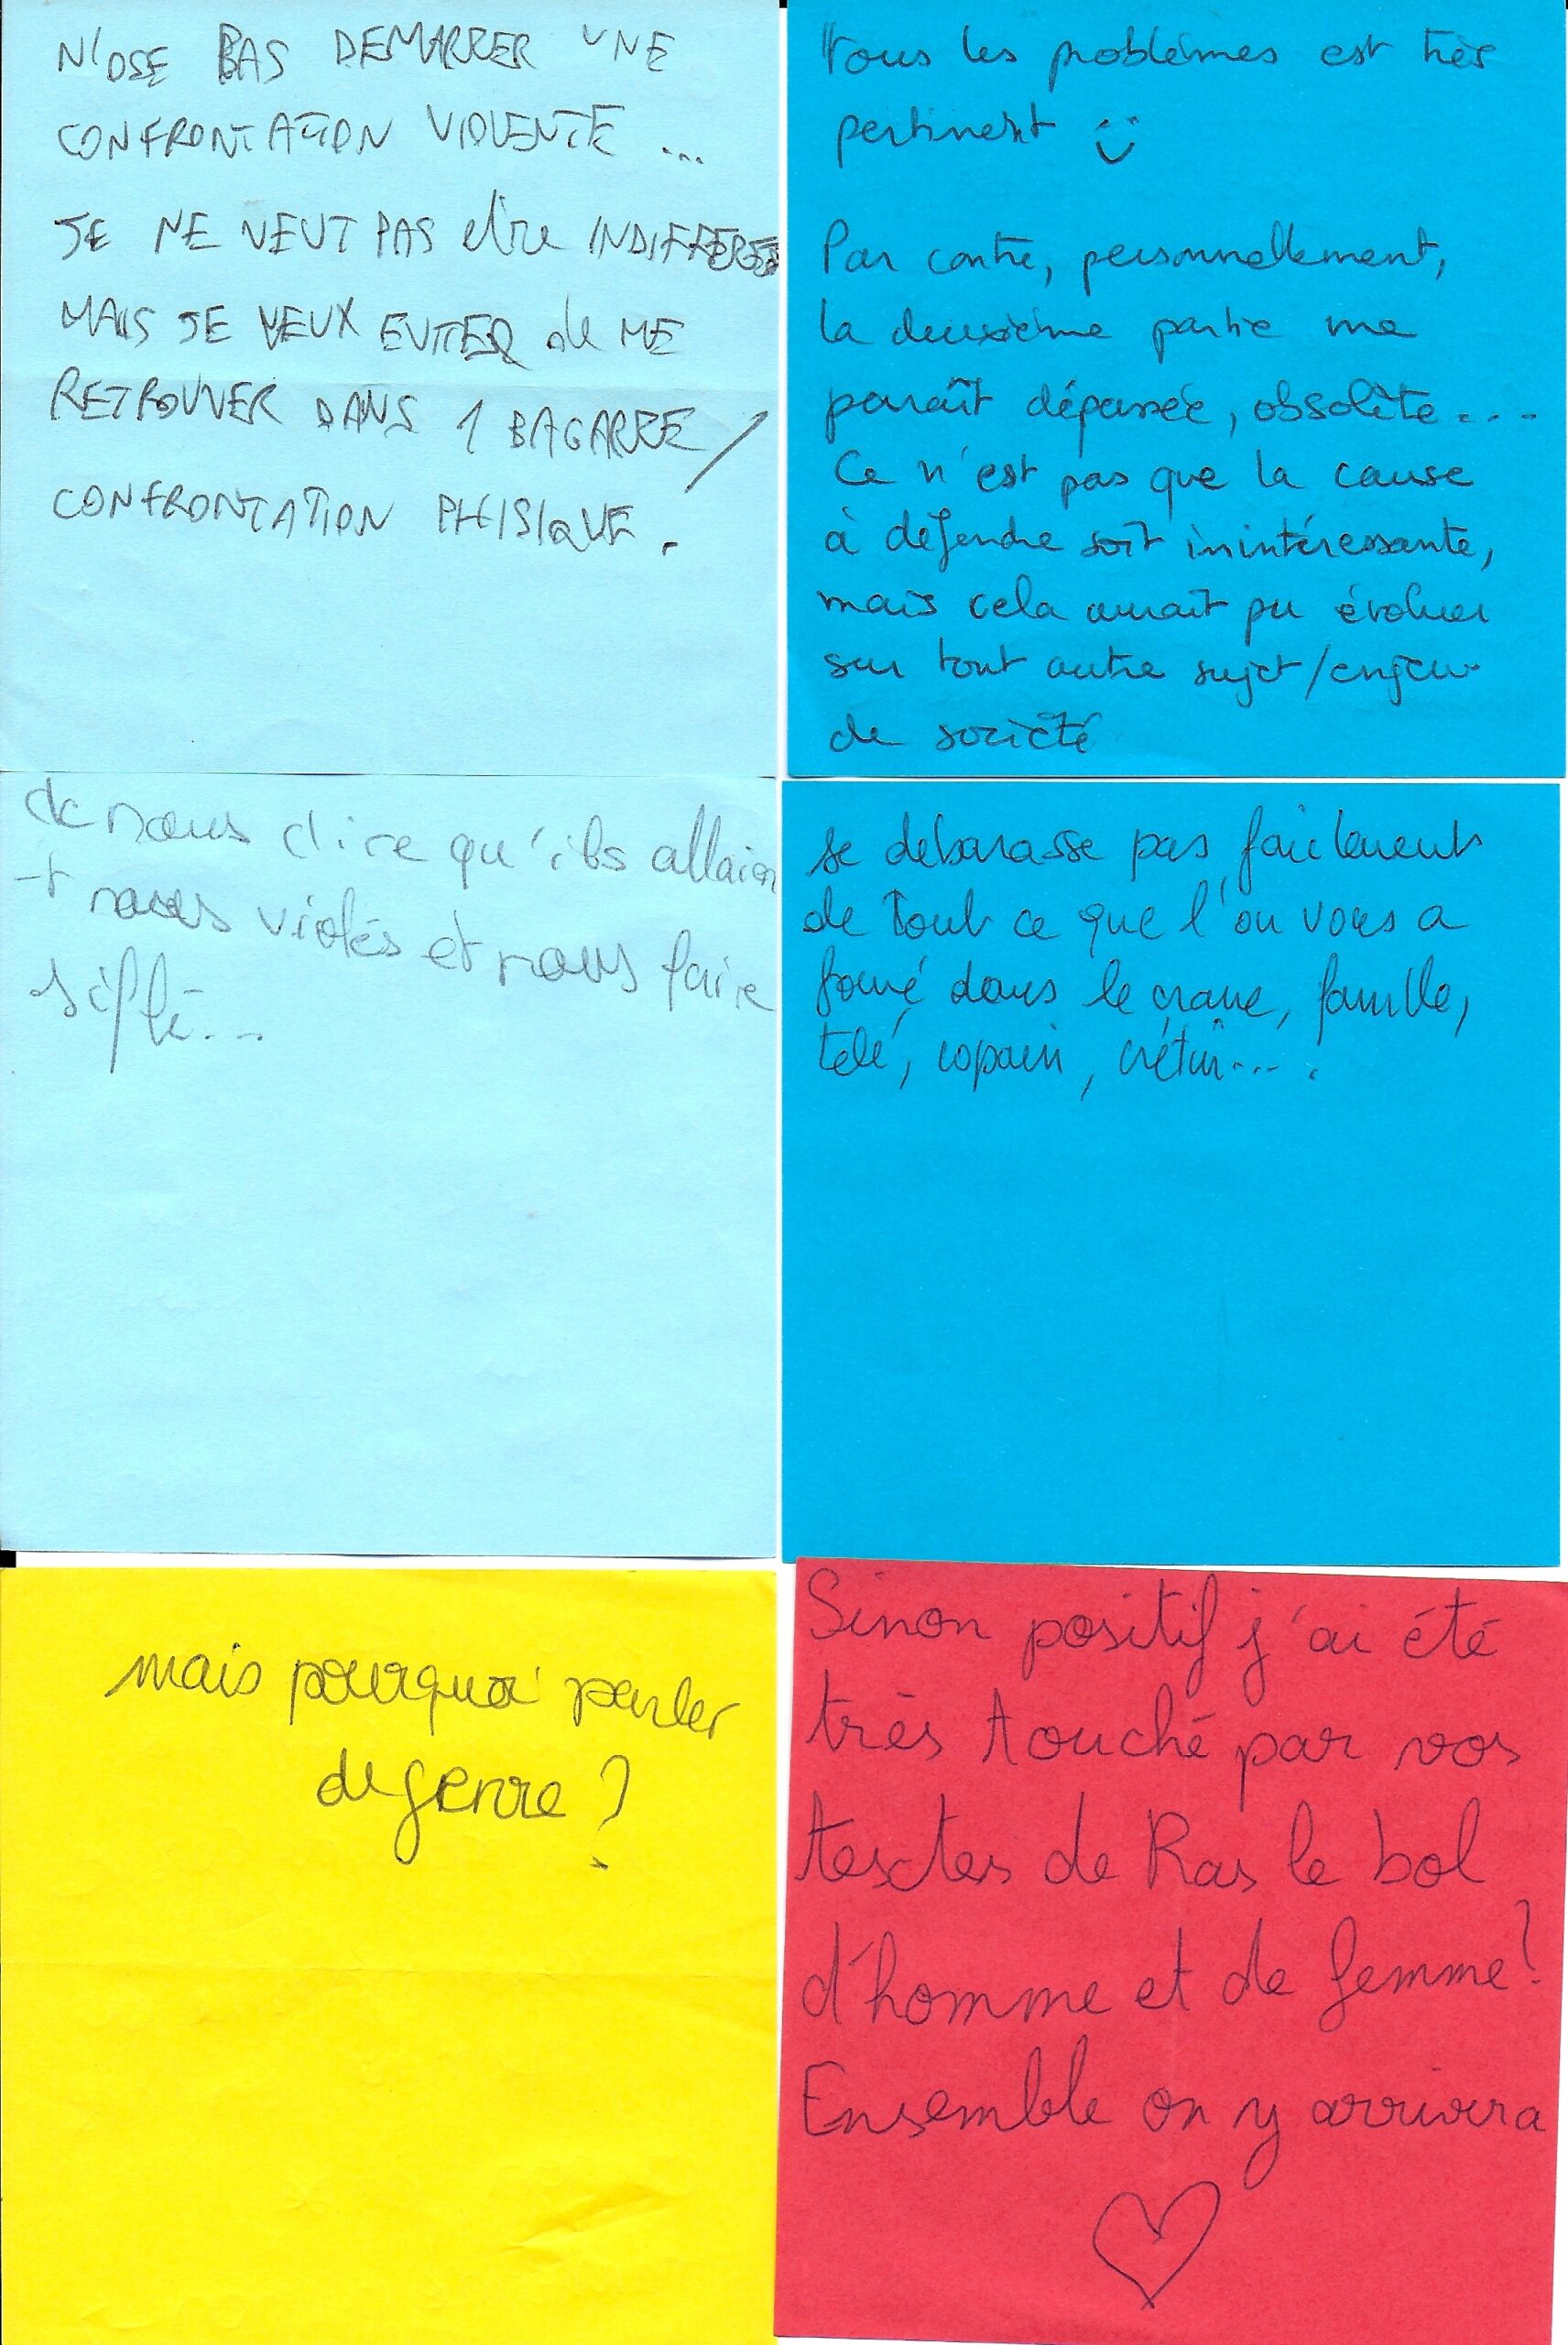 N'OSE PAS DEMARRER UNE
CONFRONTATION VIOLENTE ...
JE NE VEUT PAS être
MAIS JE VEUX EVITER de ME
RETROUVER DANS 1 BAGARRE /
CONFRONTATION PHISIQUE .
tous les problèmes est très
pertinent
Par contre, personnellement,
la deuxième partie me
paraît dépassée, obsolète....
Ce n'est pas que la cause
à défendre soit inintéressante,
mais cela aurait pu évoluer
sur tout autre sujet/enjeu
de société
de nous dire qu'ils allaien
-t nous violés et nous faire
siflé...
se debarasse pas facilement
de tout ce que l'on vous a
fourré dans le crane, famille,
telé, copain, crétin... .
mais pourquoi parler
de genre ?
Sinon positif j'ai été
très touché par vos
textes de Ras le bol
d'homme et de femme?
Ensemble on y arrivera